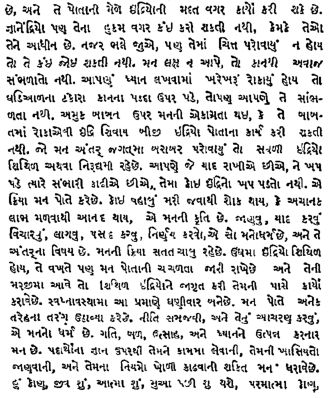 છે, અને તે પોતાની મેળે ઇંદ્રિયોની મદદ વગર કાર્યો કરી શકે છે.
જ્ઞાનેંદ્રિયો પણ તેના હુકમ વગર કંઈ કરી શકતી નથી, કેમકે તેઓ
તેને આધીન છે. નજર ભલે જુઓ, પણ તેમાં ચિત્ત પરોવાયું ન હોય
તો તે કંઈ જોઈ શકતી નથી. મન લક્ષ ન આપે, તો કાનથી અવાજ
સંભળાતો નથી. આપણું ધ્યાન લખવામાં ખરેખરૂં રોકાયું હોય તો
ઘડિઆળના ટકોરા કાનના પડદા ઉપર પડે, તોપણ આપણે તે સાંભ-
ળતા નથી. અમુક બાબત ઉપર મનની એકાગ્રતા થઈ, કે તે બાબ-
તમાં રોકાએલી ઇંદ્રિ સિવાય બીજી ઇંદ્રિયો પોતાનાં કાર્ય કરી શકતી
નથી. જો મન અંતર્ જગત્‌માં બરાબર પરોવાયું તો સઘળી ઇંદ્રિયો
શિથિળ અથવા નિરૂદ્યમી રહેછે. આપણે જે યાદ રાખીએ છીએ, ને ખપ
પડે ત્યારે સંભારી કાઢીએ છીએ, તેમાં કોઈ ઇંદ્રિનો ખપ પડતો નથી. એ
ક્રિયા મન પોતે કરેછે. કોઈ વહાલું મરી જવાથી શોક થાય, કે અચાનક
લાભ મળવાથી આનંદ થાય, એ મનની કૃતિ છે. જાણવું, યાદ કરવું
વિચારવું, લાગવું, પસંદ કરવું, નિર્ણય કરવો, એ સૌ મનોધર્મ છે, અને તે
અંતર્‌ના વિષય છે. મનની ક્રિયા સતત ચાલુ રહેછે. ઉંઘમાં ઇંદ્રિયો શિથિળ
હોય, તે વખતે પણ મન પોતાની ચંચળતા જારી રાખેછે અને તેની
મરજીમાં આવે તો શિથિળ ઇંદ્રિયોને જાગૃત કરી તેમની પાસે કાર્યો
કરાવેછે. સ્વપ્નાવસ્થામાં આ પ્રમાણે ઘણીવાર બનેછે. મન પોતે અનેક
તરેહના તરંગ ઉઠાવ્યા કરેછે. નીતિ સમજવી, અને તેનું આચરણ કરવું,
એ મનનો ધર્મ છે. ગતિ, બળ, ઉત્સાહ, અને ધ્યાનને ઉત્પન્ન કરનાર
મન છે. પદાર્થોના જ્ઞાન ઉપરથી તેમને કામમાં લેવાની, તેમની ખાસિયતો
જાણવાની, અને તેમના નિયમો ખોળી કાઢવાની શક્તિ મન ધરાવેછે.
હું કોણ, જીવ શું, આત્મા શું, મુઆ પછી શું થશે, પરમાત્મા કોણ,